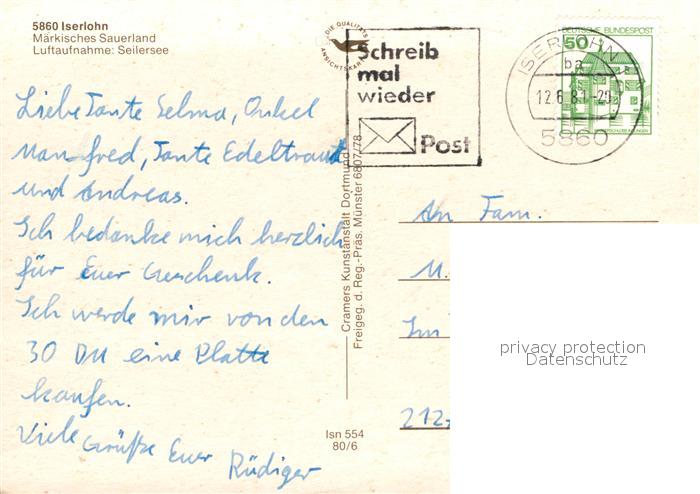 5860 Iserlohn
Märkisches Sauerland
Luftaufnahme: Seilersee
DIE QUALITÄTS
ANSICHTSKARTE
Schreib
mal
wieder
Post
ISERLOHN
ba
12.6.81-20
5860
50
DEUTSCHE BUNDESPOST
Liebe Tante Selma, Onkel
Manfred, Tante Edeltraut
und Andreas.
Ich bedanke mich herzlich
für Euer Geschenk.
Ich werde mir von den
30 DM eine Platte
kaufen.
Viele Grüße Euer Rüdiger
Cramers Kunstanstalt Dortmund
Freigeg. d. Reg.-Präs. Münster 6807/78
Isn 554
80/6
An Fam.
M.
Im
212
privacy protection
Datenschutz